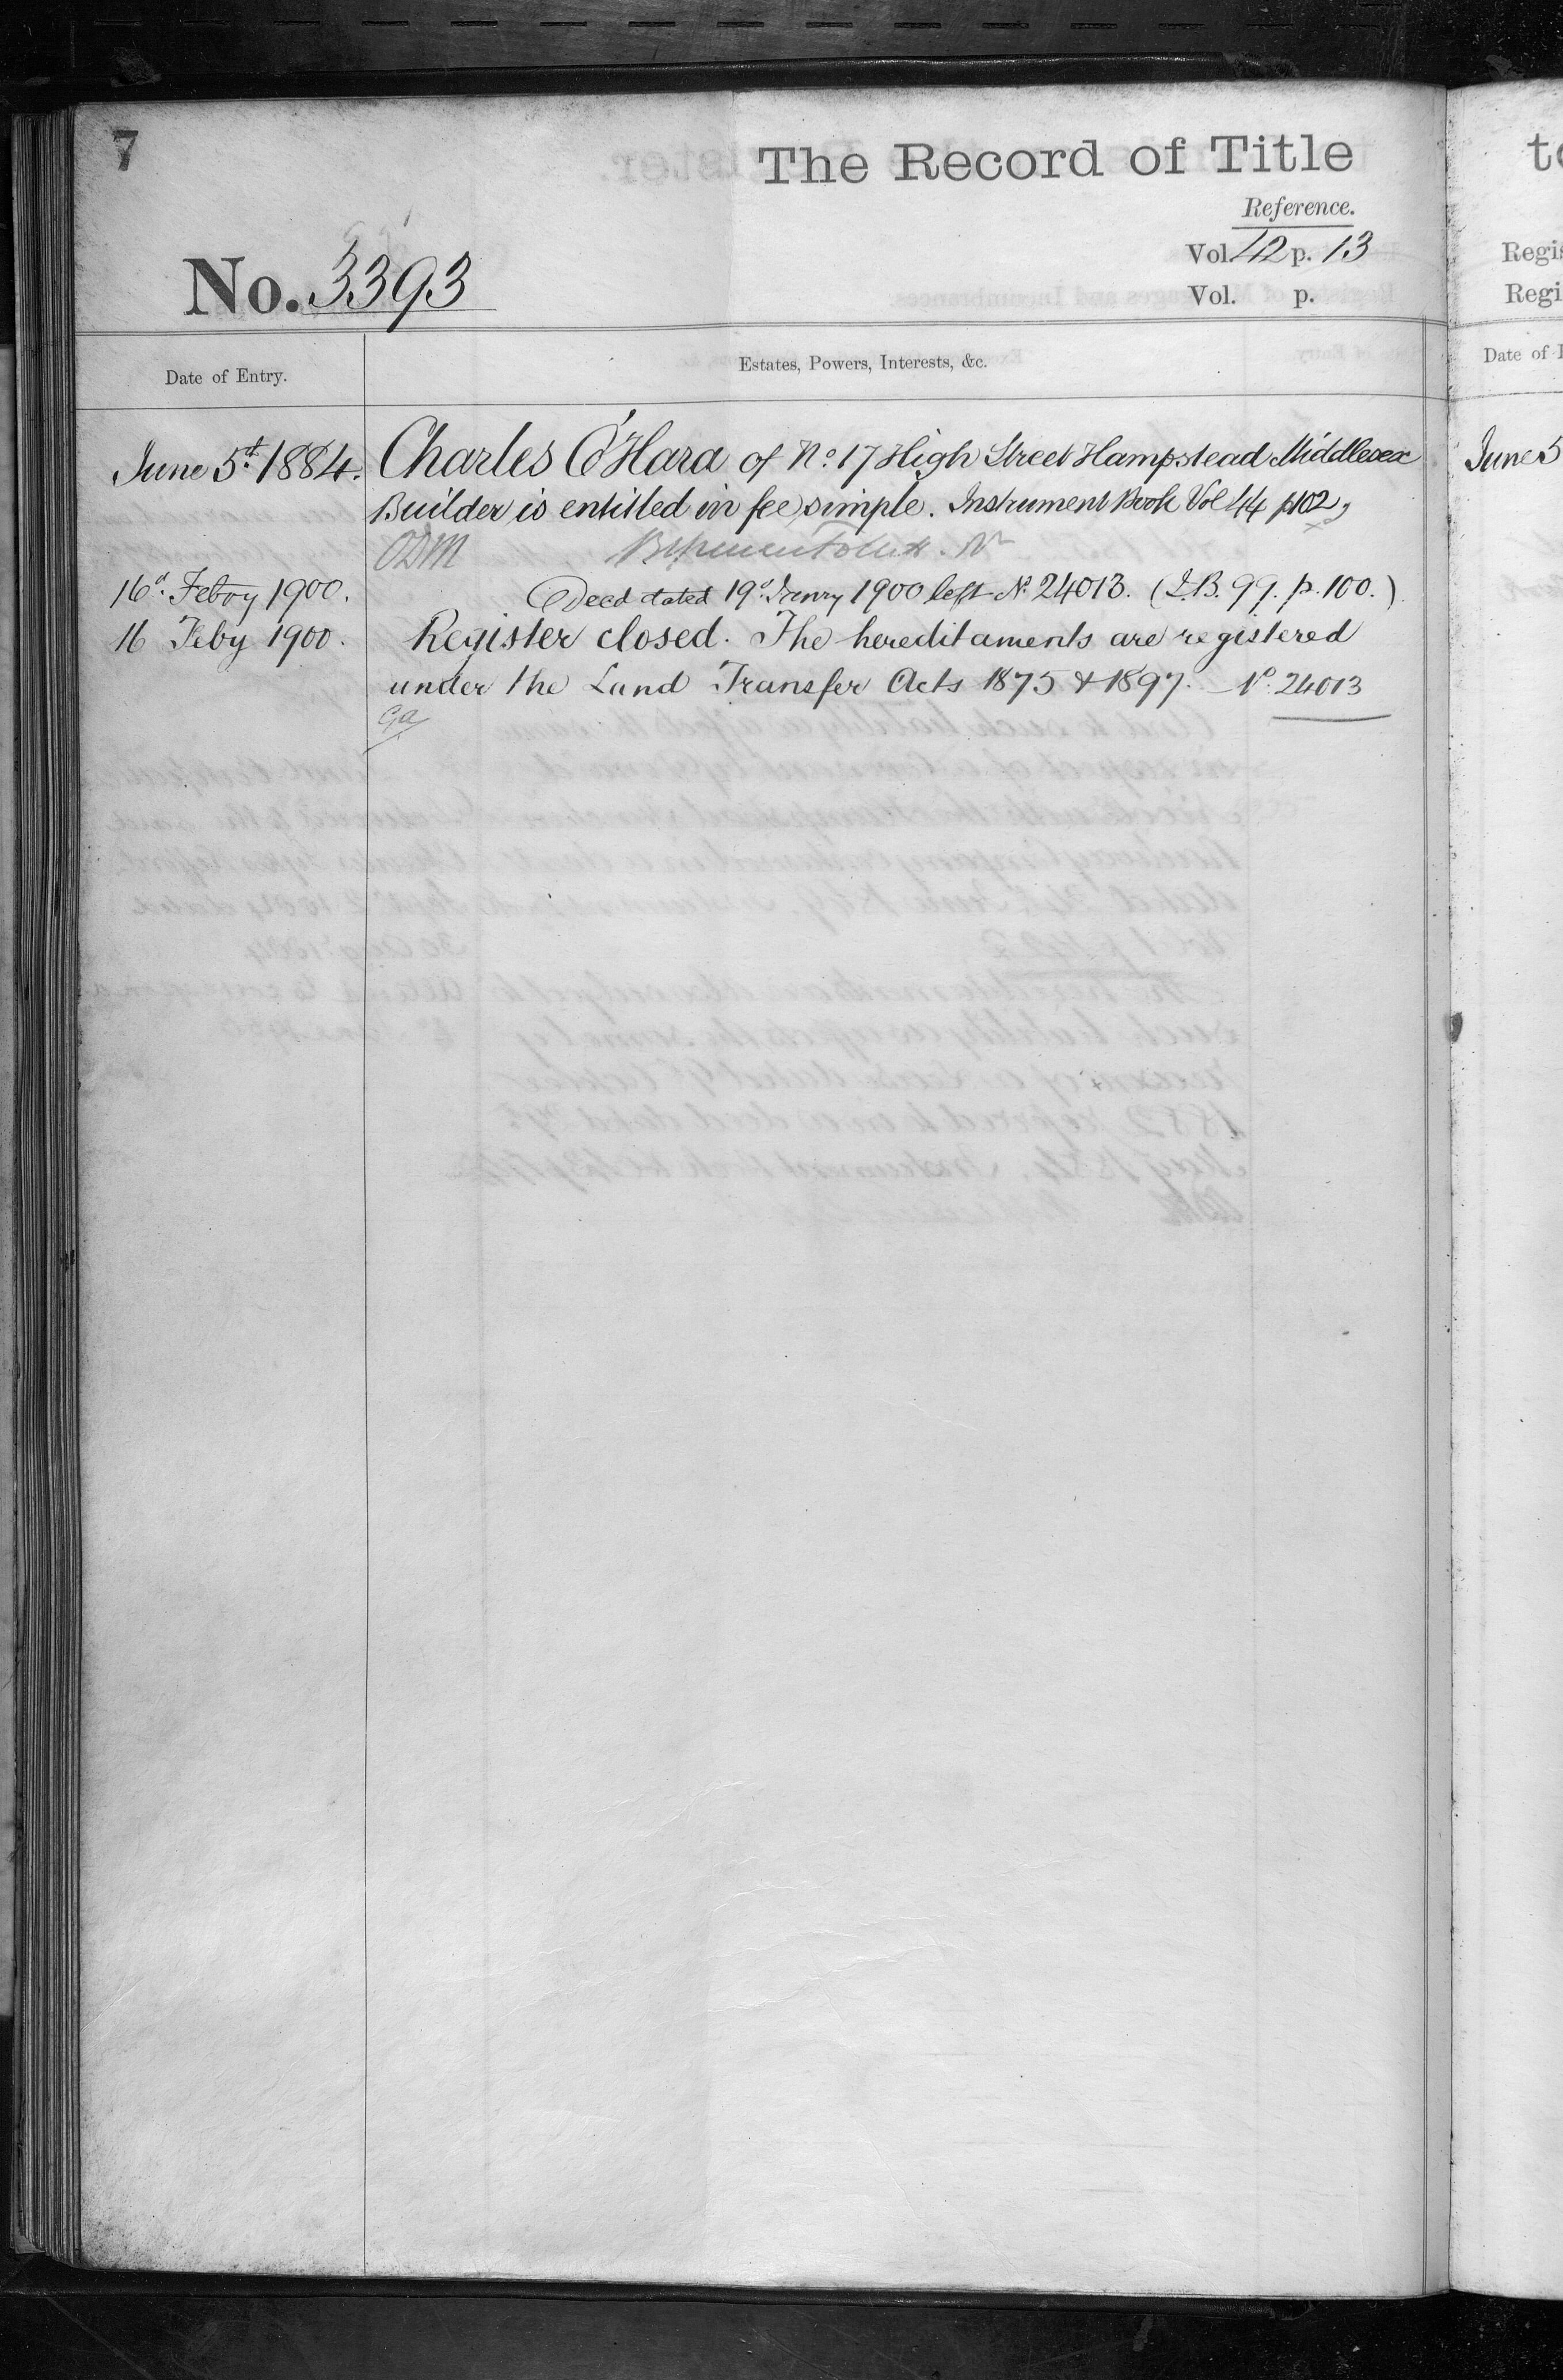 7
The Record of Title
Reference.
Vol. 42 p. 13
Vol. p.
No. 3393
Date of Entry.
Estates, Powers, Interests, &c.
June 5th 1884. Charles O'Hara of No. 17 High Street Hampstead Middlesex
Builder is entitled in fee simple. Instrument Book Vol 44 p 102
ODM
16d. Febry 1900. Deed dated 19d. Janry 1900 left No. 24013. (I.B. 99. p. 100.)
16 Feby 1900. Register closed. The hereditaments are registered
under the Land Transfer Acts 1875 & 1897. No. 24013
Ga
to
Regis
Regi
Date of
June 5